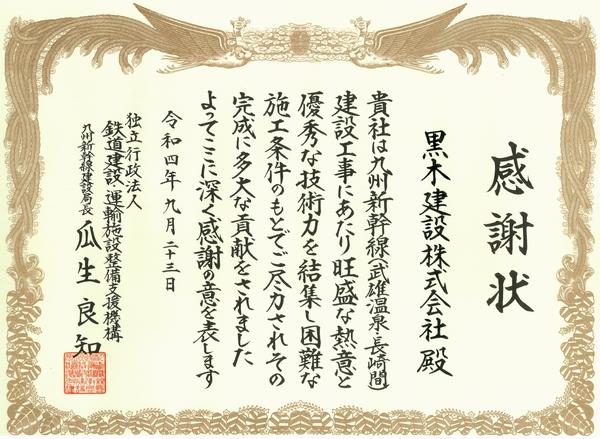 感謝状
黒木建設株式会社 殿
貴社は九州新幹線(武雄温泉・長崎間)
建設工事にあたり旺盛な熱意と
優秀な技術力を結集し困難な
施工条件のもとでご尽力されその
完成に多大な貢献をされました
よってここに深く感謝の意を表します
令和四年九月二十三日
独立行政法人
鉄道建設・運輸施設整備支援機構
九州新幹線建設局長 瓜生良知